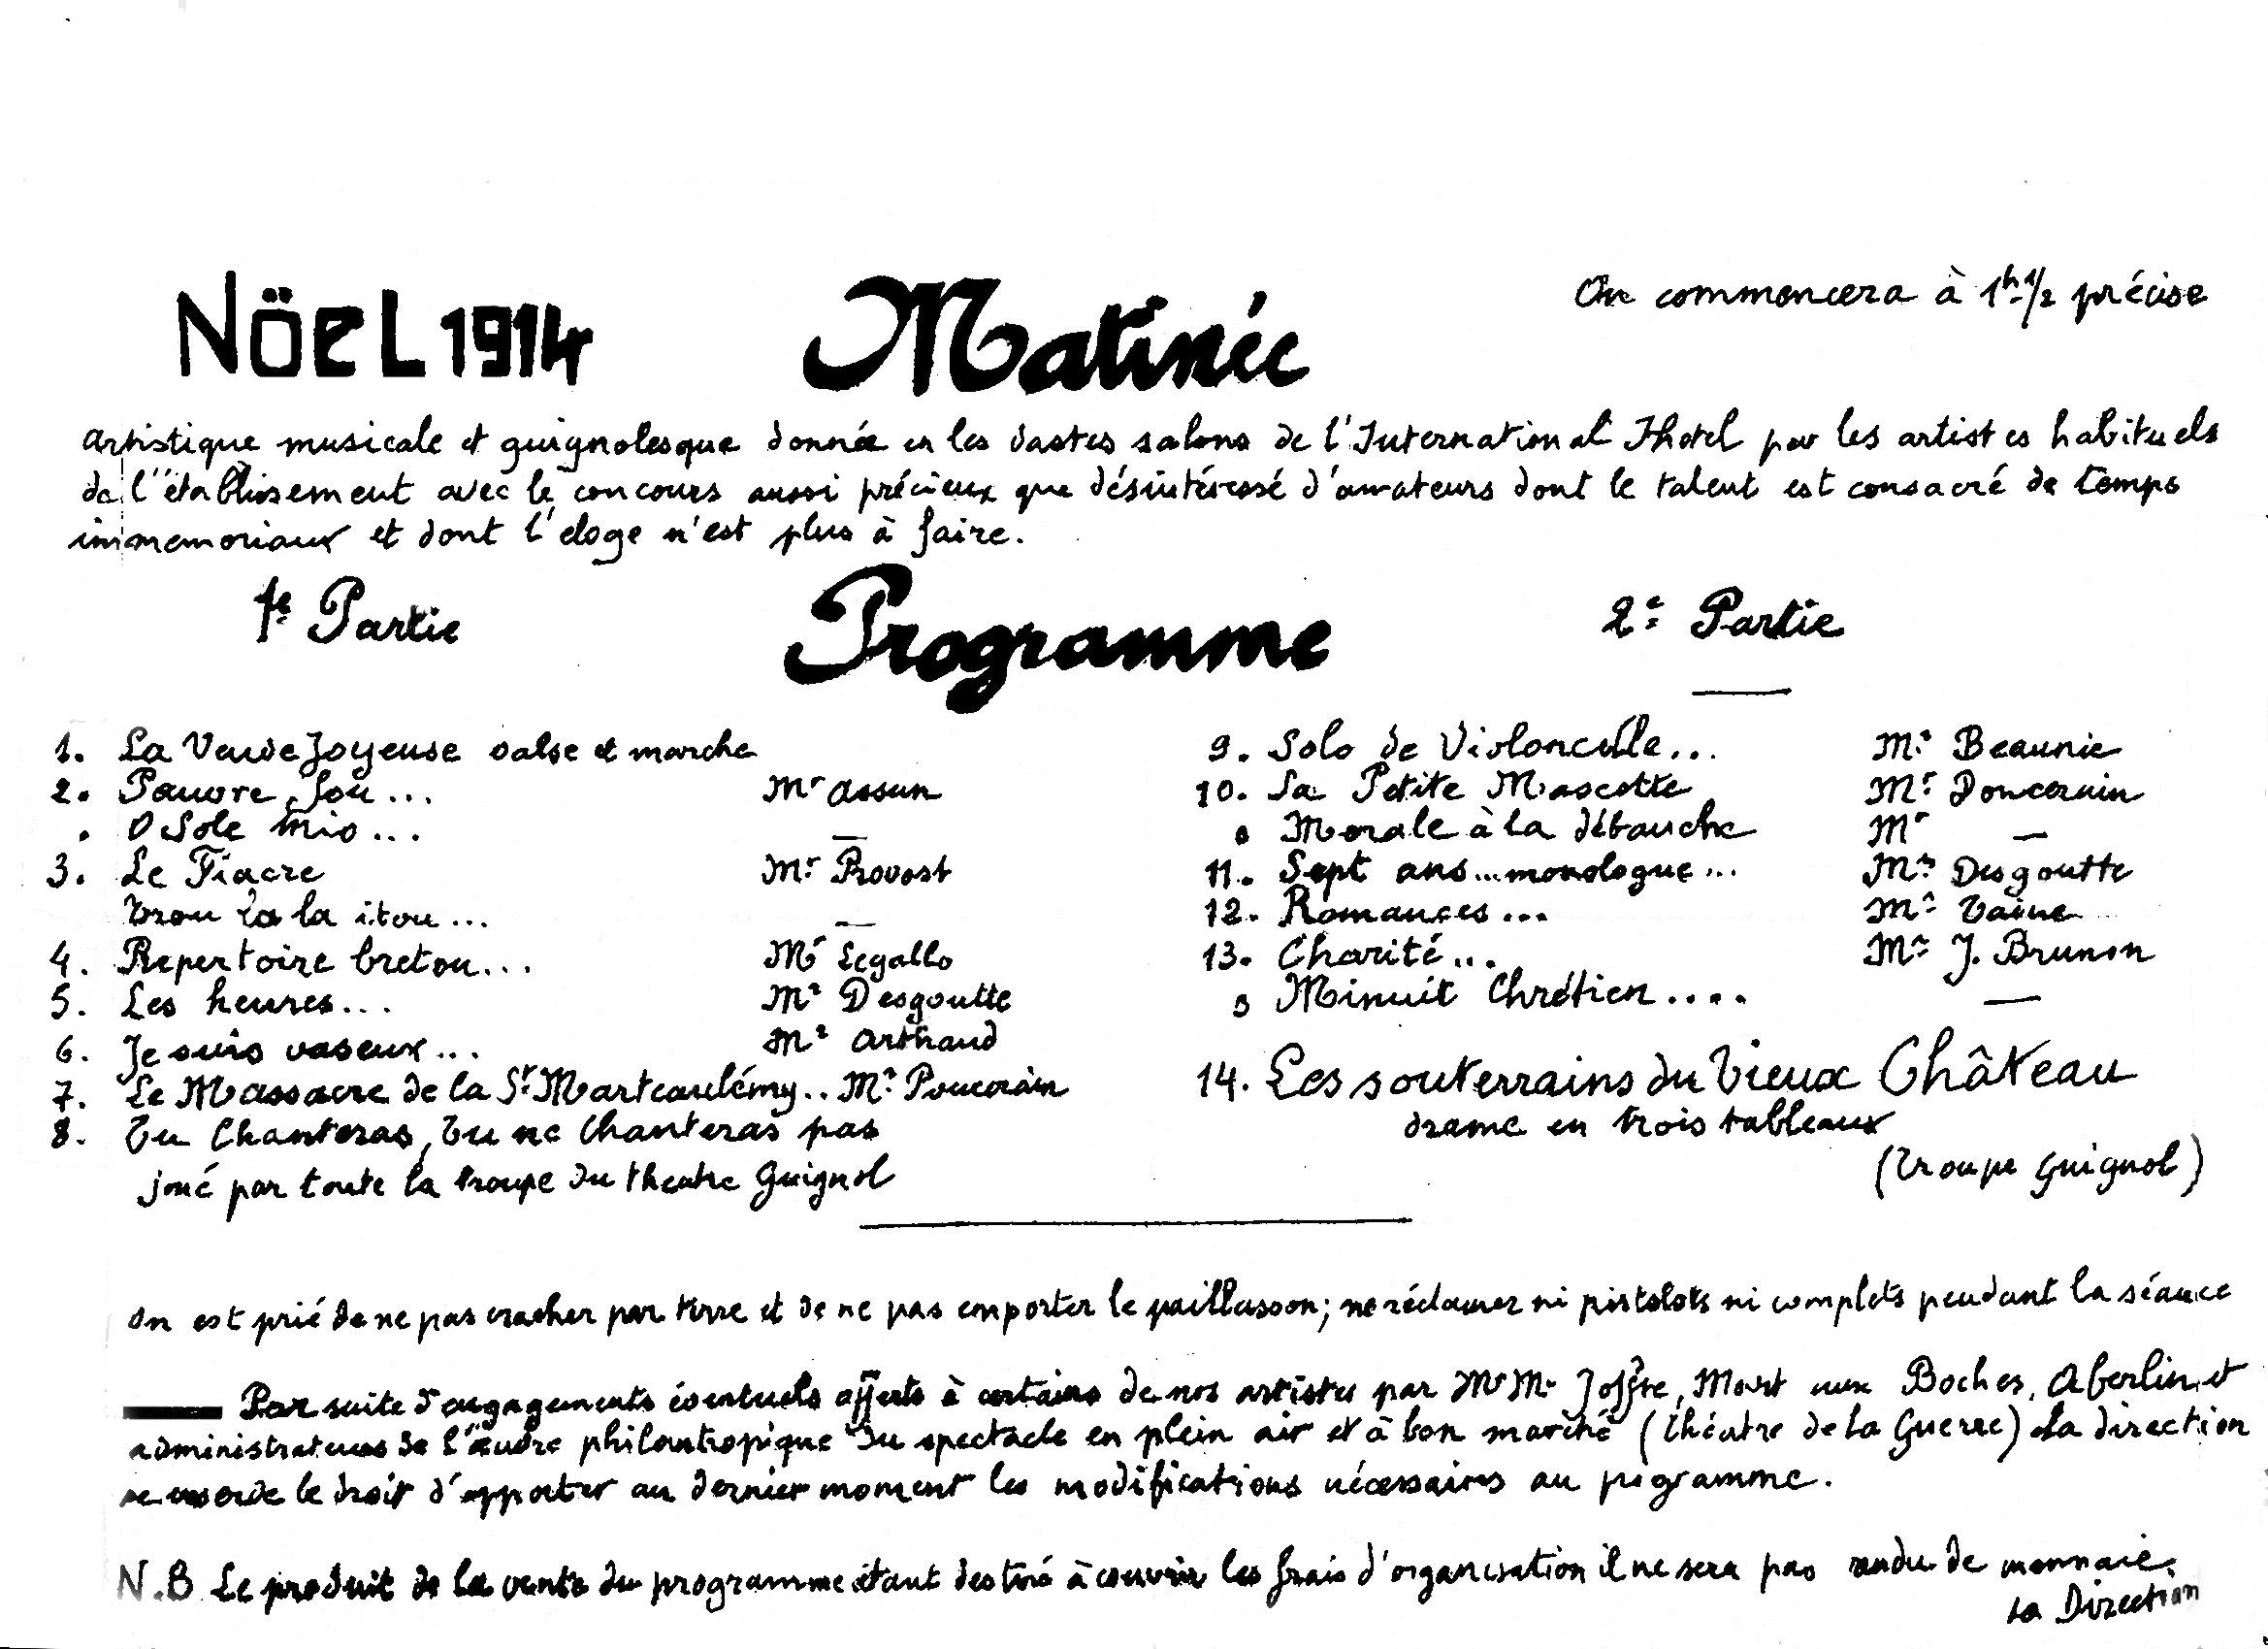 NÖEL 1914
Matinée
On commencera à 1h 1/2 précise
artistique musicale et guignolesque donnée en les vastes salons de l'International Thotel par les artistes habituels
de l'établissement avec le concours aussi précieux que désintéressé d'amateurs dont le talent est consacré de temps
immemoriaux et dont l'eloge n'est plus à faire.
Programme
1e Partie
1. La Veuve Joyeuse valse et marche
2. Pauvre fou... Mr Assun
. O Sole mio... —
3. Le Fiacre Mr Provost
Trou la la itou... —
4. Repertoire breton... Mr Legallo
5. Les heures... Mr Desgoutte
6. Je suis vaseux... Mr Arthaud
7. Le Massacre de la St Marteaulémy.. Mr
8. Tu Chanteras, Tu ne Chanteras pas
joué par toute la troupe du theatre Guignol
2e Partie
9. Solo de Violoncelle... Mr Beaunie
10. La Petite Mascotte Mr
Morale à la débauche Mr —
11. Sept ans... monologue... Mr Desgoutte
12. Romances... Mr Taine
13. Charité... Mr J. Brunon
Minuit Chrétien.... —
14. Les souterrains du Vieux Château
drame en trois tableaux
(Troupe Guignol)
On est prié de ne pas cracher par terre et de ne pas emporter le paillasson; ne réclamer ni pistolots ni complets pendant la séance
Par suite d'engagements éventuels offerts à certains de nos artistes par Mr Mr Joffre, Mort aux Boches, Aberlin et
administrateurs de l'œuvre philantropique du spectacle en plein air et à bon marché (théatre de la Guerre) La direction
se reserve le droit d'apporter au dernier moment les modifications nécessaires au pogramme.
N.B Le produit de la vente du programme étant destiné à couvrir les frais d'organisation il ne sera pas rendu de monnaie.
La Direction